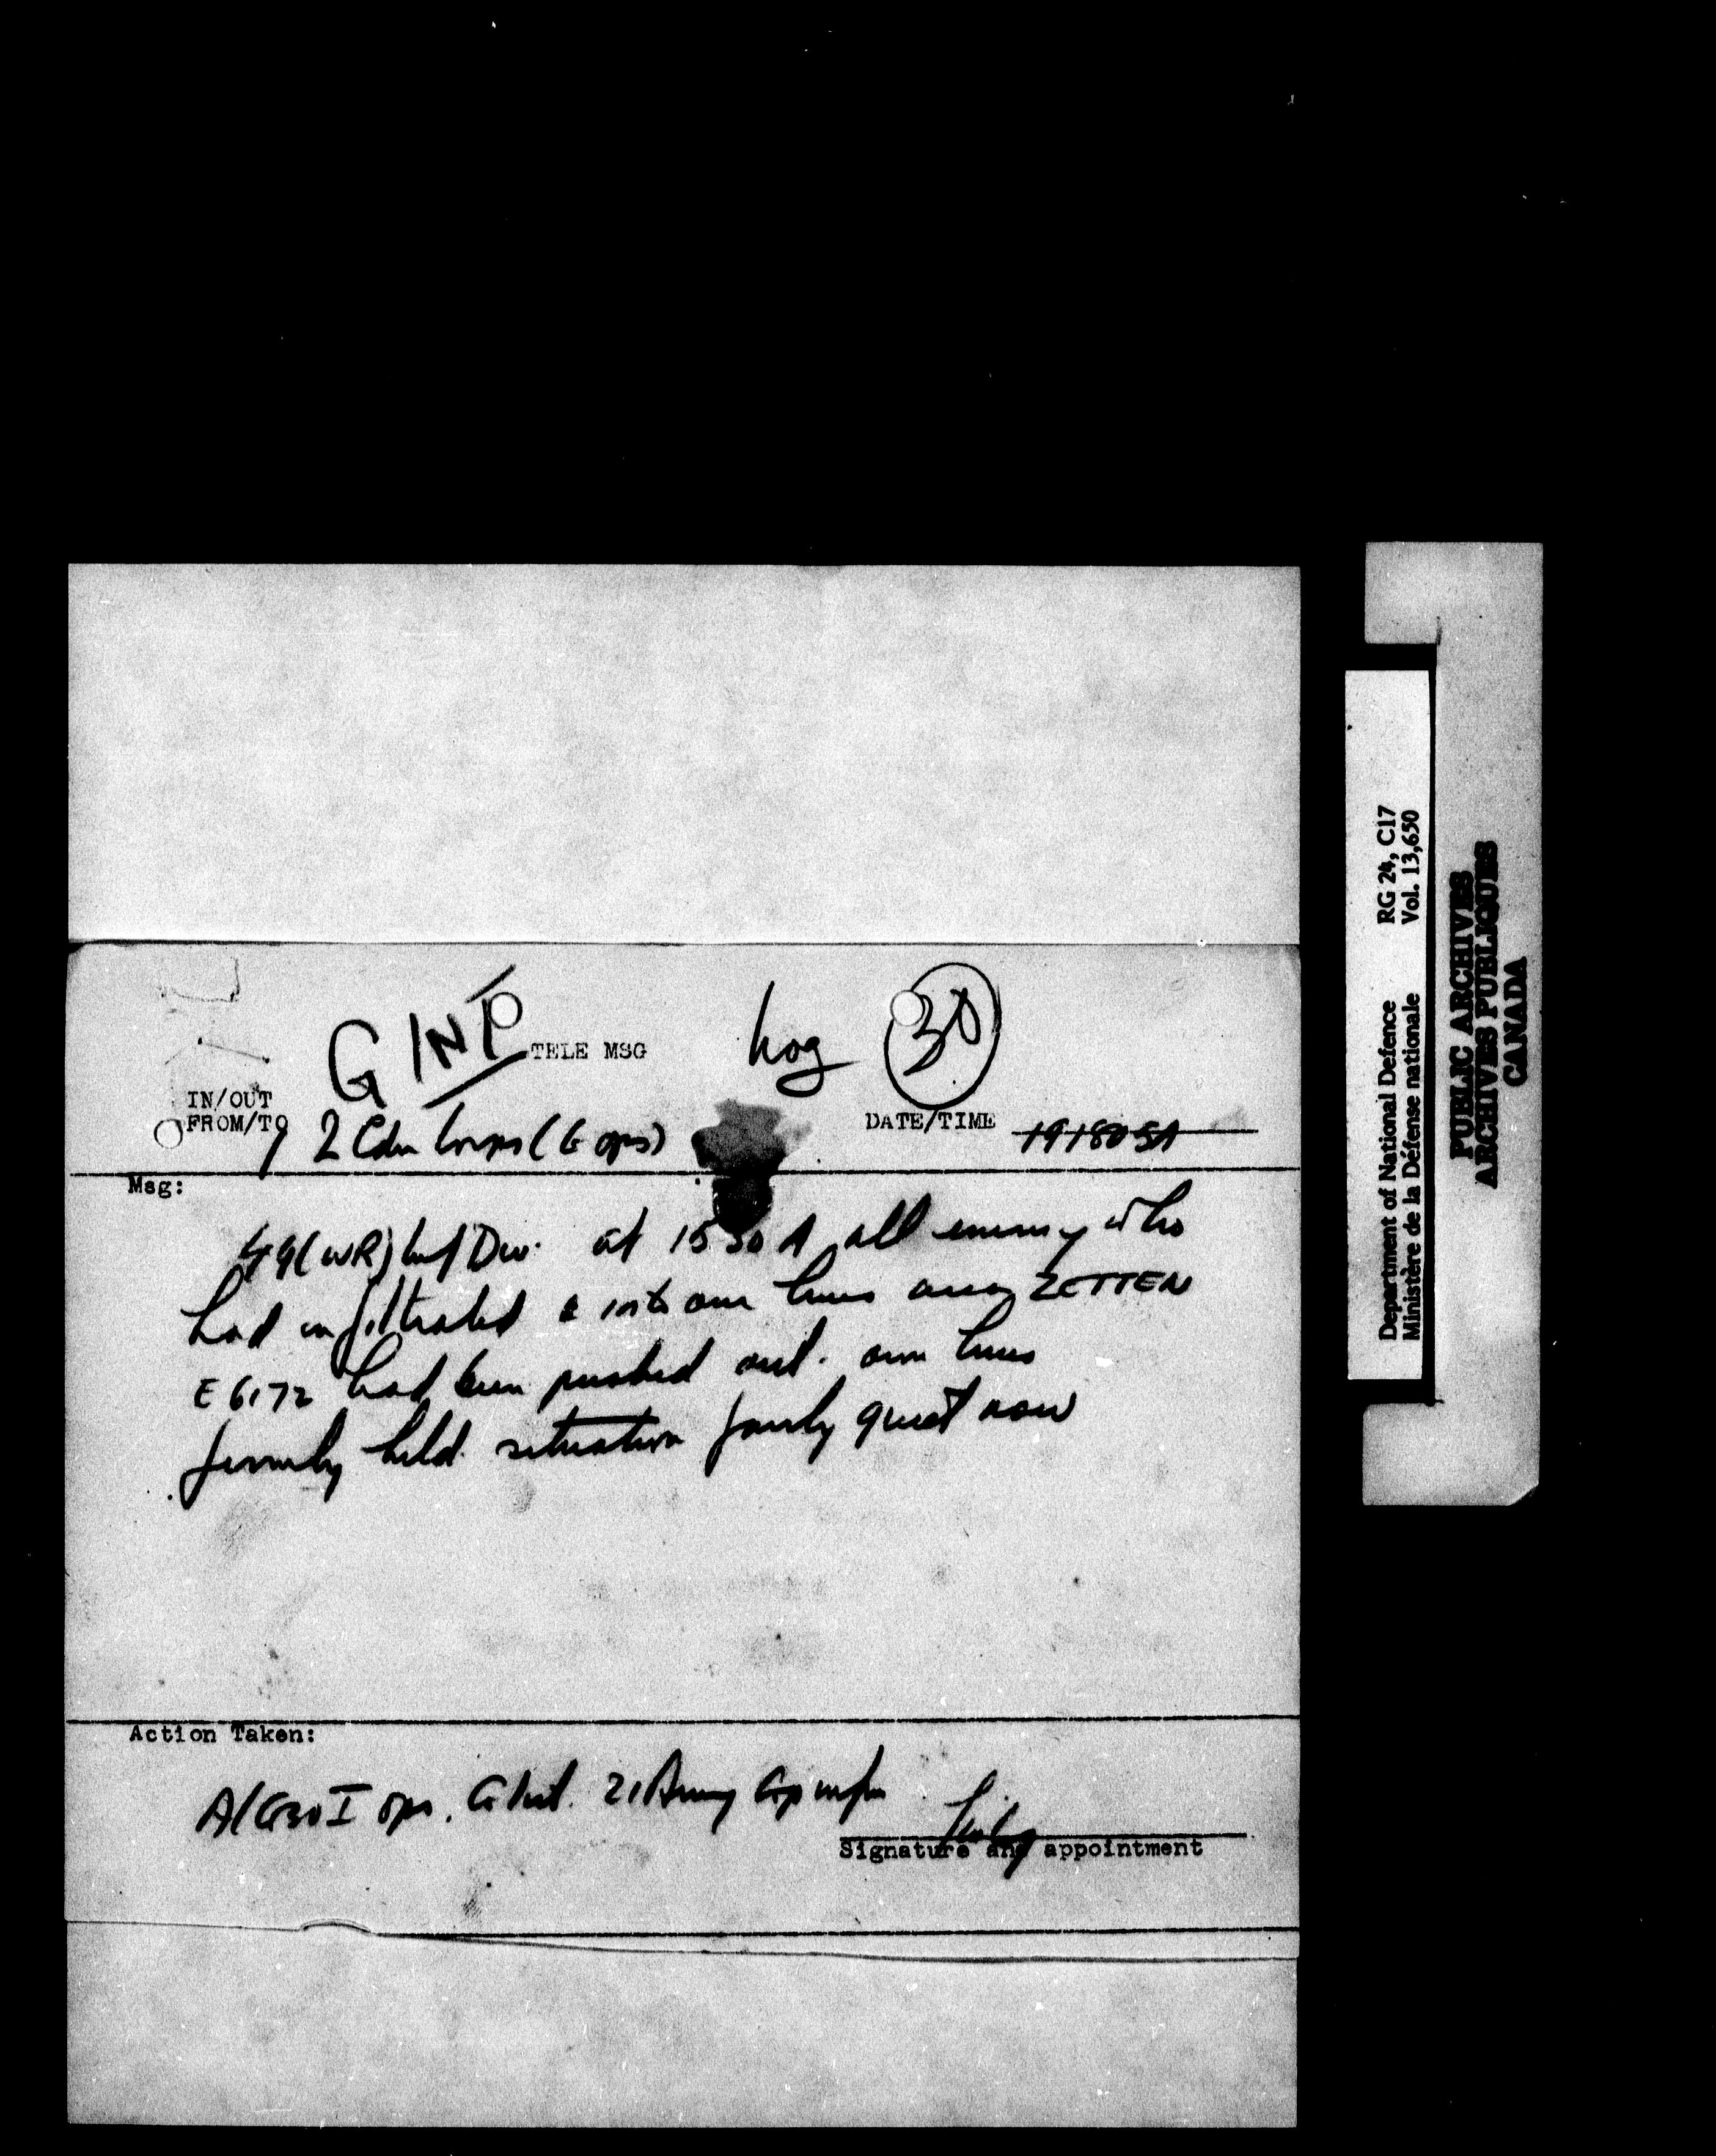 G INT
TELE MSG
Log
30
IN/OUT
FROM/TO
2 Cdn Corps (G ops)
DATE/TIME
191805A
Msg:
49 (WR) Inf Div. at 1530 A all enemy who
had infiltrated into our lines area ZETTEN
E 6172 had been pushed out. own lines
firmly held. situation fairly quiet now
Action Taken:
A/GSO I ops. G Int. 21 Army Gp infm
Signature and appointment
Department of National Defence RG 24, C17
Ministère de la Défense nationale Vol. 13,650
PUBLIC ARCHIVES
ARCHIVES PUBLIQUES
CANADA